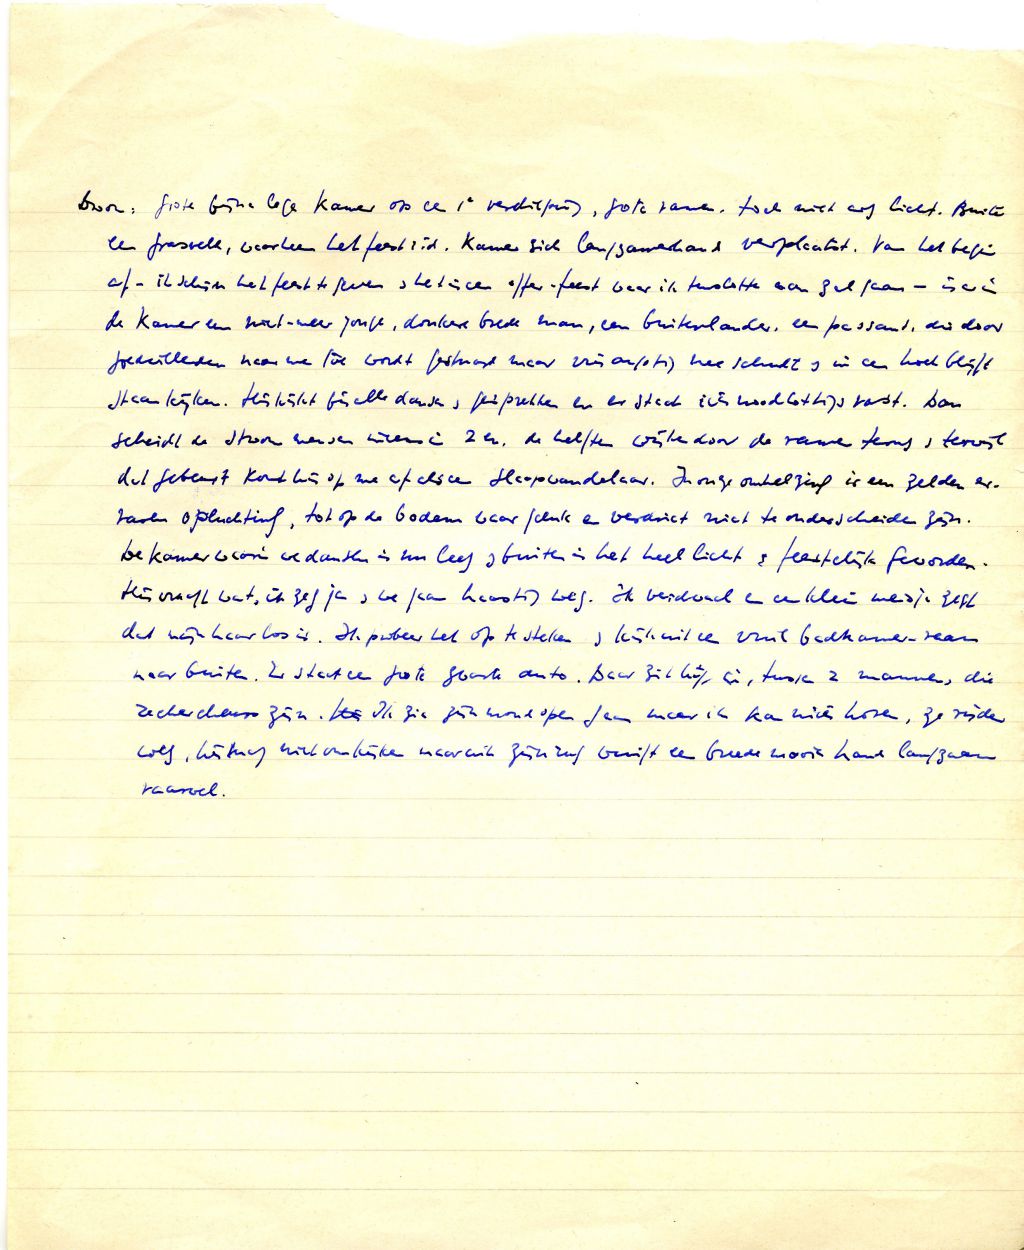 Droom: grote bijna lege kamer op een 1e verdieping, grote ramen. toch niet erg licht. Buiten
een grasveld, waarheen het feest zich. Kamer zich langzamerhand verplaatst. Van het begin
af – ik schijn het feest te geven & het is een offer-feest waar ik tenslotte aan zal gaan – is er in
de kamer een niet-meer jonge, donkere brede man, een buitenlander, een passant, die door
goedwillenden naar me toe wordt gestuurd maar vriis angstig nee schudt & in een hoek blijft
staan kijken. Hij kijkt bij alle dansen & gesprekken en er staat iets noodlottigs vast. Dan
scheidt de stroom mensen ineens in 2en. de helft en wijken door de ramen terug & terwijl
dat gebeurt komt hij op me af als een slaapwandelaar. In onze omhelzing is een zelden er-
varen opluchting, tot op de bodem waar geluk en verdriet niet te onderscheiden zijn.
De kamer waarin we dansen is nu leeg & buiten is het heel licht & feestelijk geworden.
Hij vraagt wat, ik zeg ja & we gaan haastig weg. Ik verdwaal en een klein meisje zegt
dat mijn haar los is. Ik probeer het op te steken & kijk uit een vuil badkamer-raam
naar buiten. Er staat een grote zwarte auto. Daar zit hij in, tussen 2 mannen, die
rechercheurs zijn. Ik zie zijn mond open gaan maar ik kan niets horen, ze rijden
weg, hij mag niet omkijken maar uit zijn rug wuift een brede mooie hand langzaam
vaarwel.